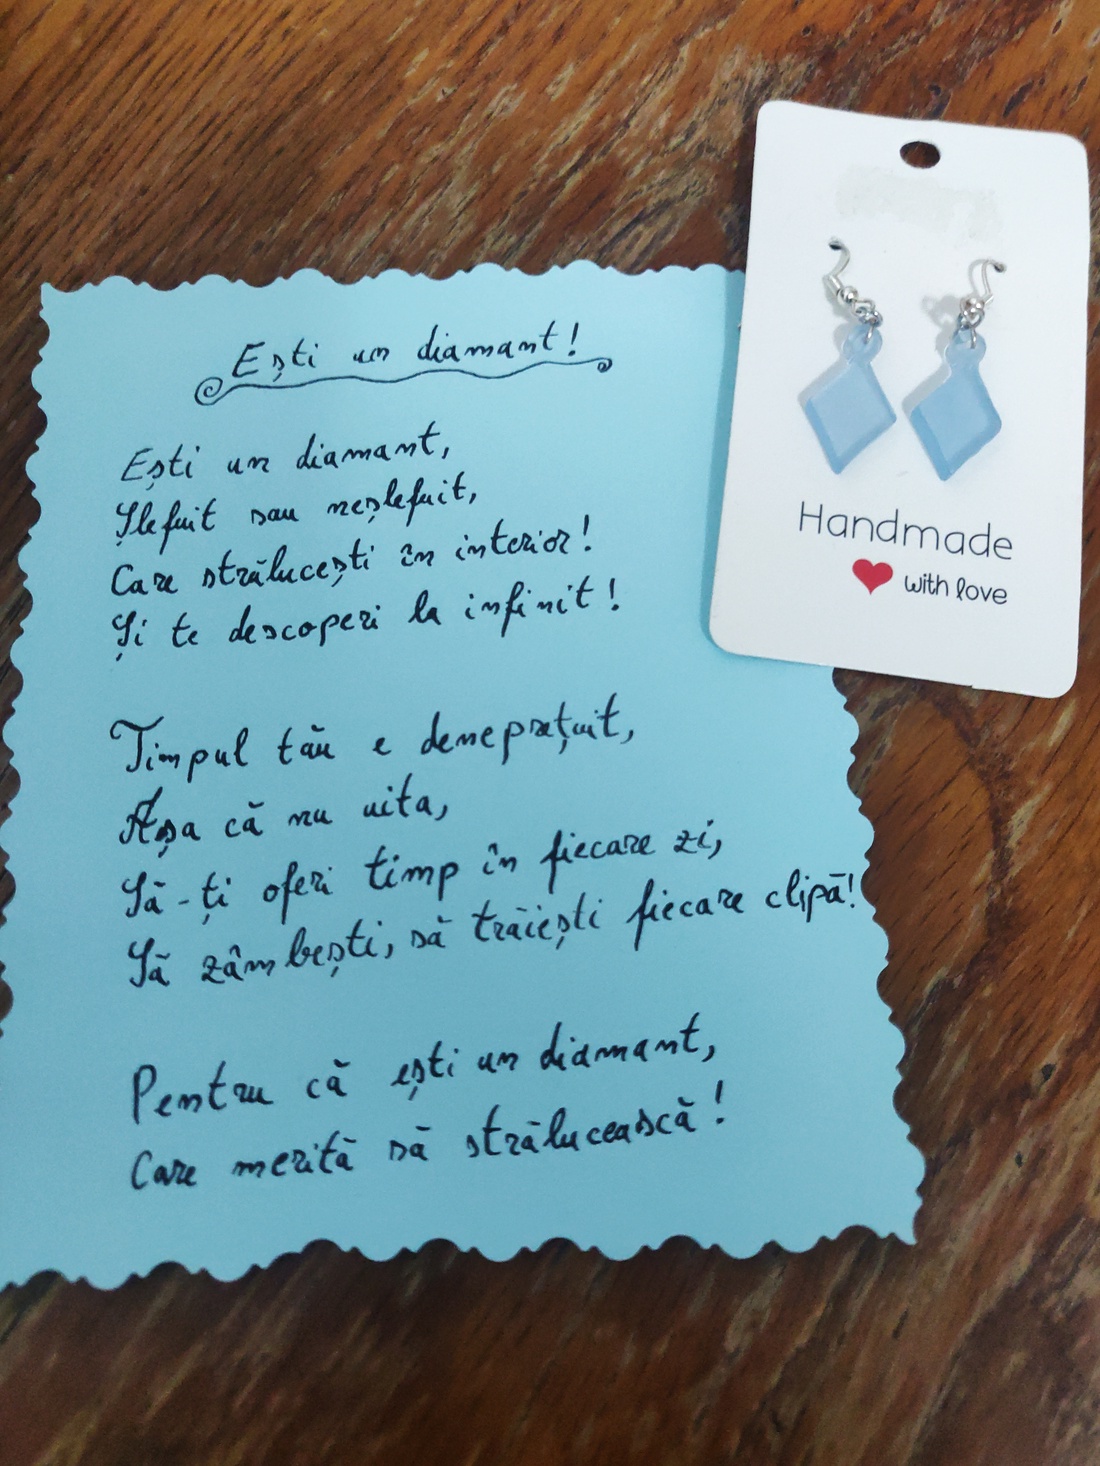 Ești un diamant!
Ești un diamant,
Șlefuit sau neșlefuit,
Care strălucești în interior!
Și te descoperi la infinit!
Timpul tău e deneprețuit,
Așa că nu uita,
Să-ți oferi timp în fiecare zi,
Să zâmbești, să trăiești fiecare clipă!
Pentru că ești un diamant,
Care merită să strălucească!
Handmade
with love